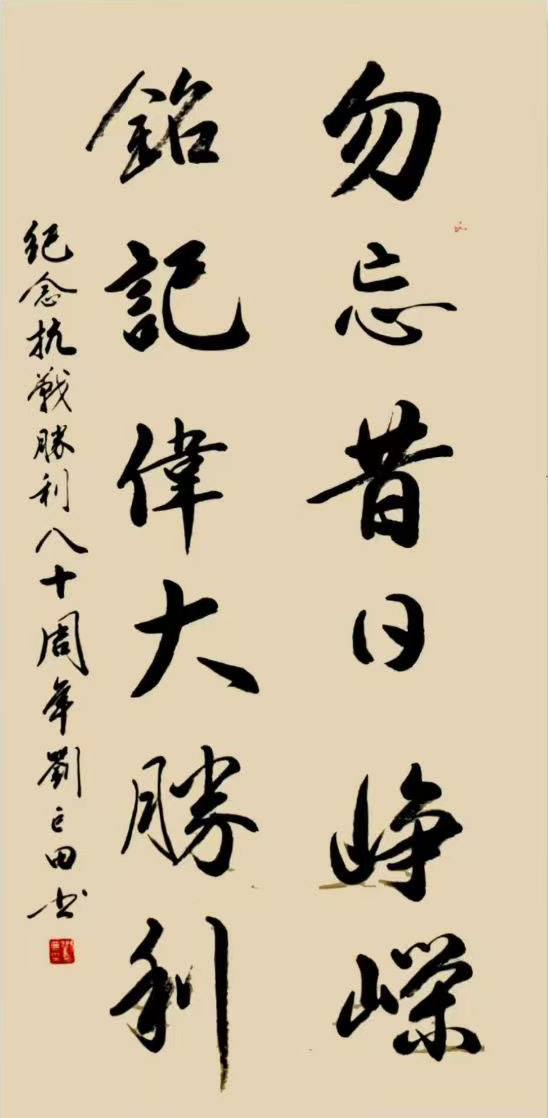 勿忘昔日峥嵘
銘記偉大勝利
紀念抗戰勝利八十周年劉己田书